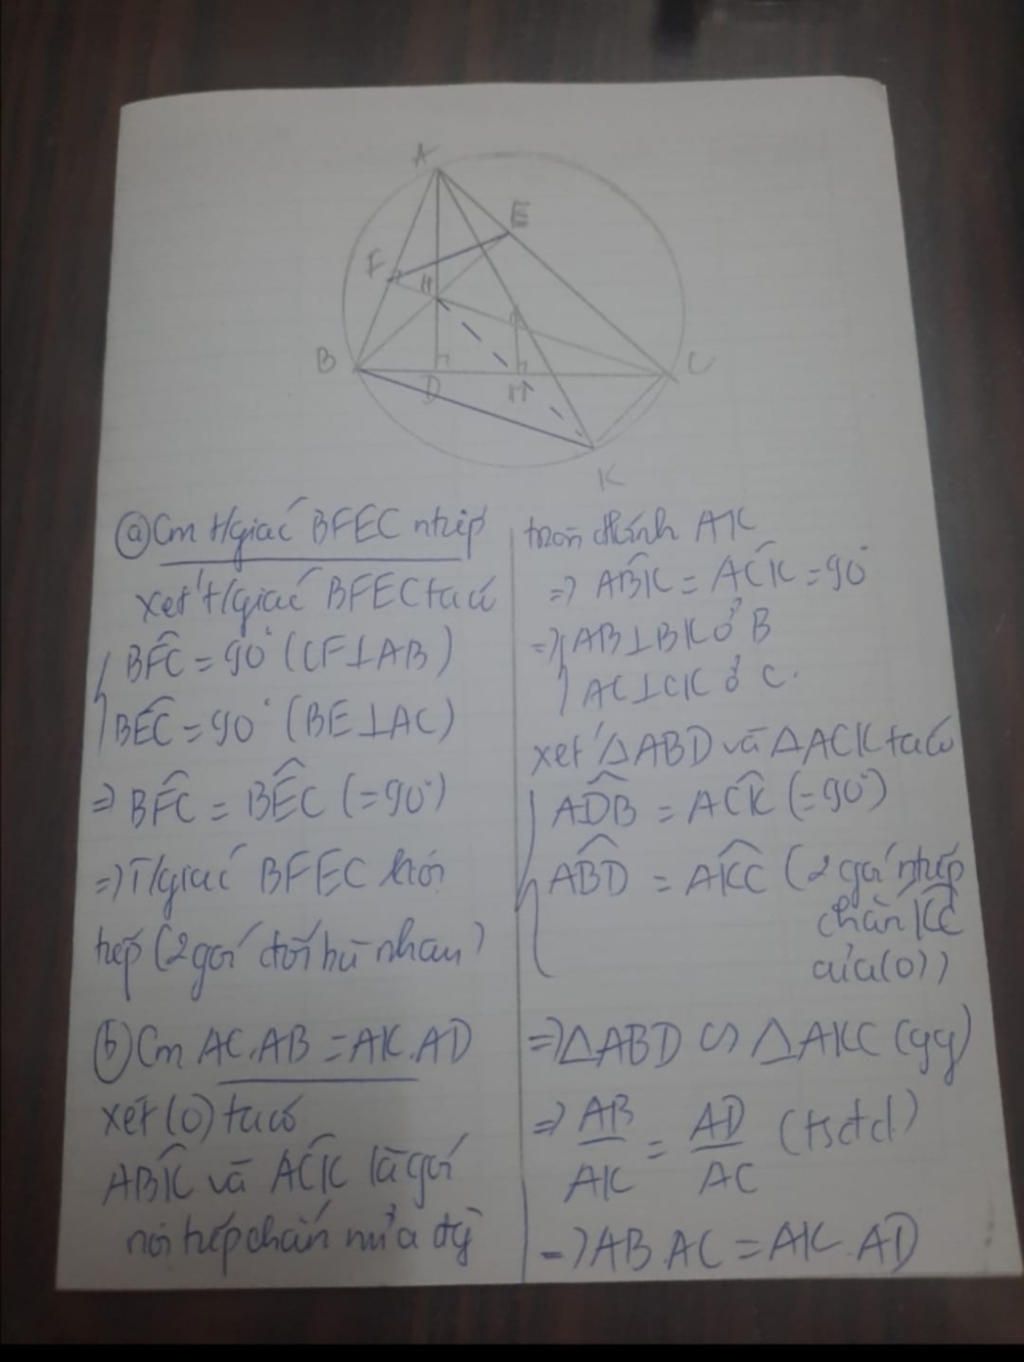 A
E
F
H
B
D
M
C
K
ⓐ Cm t/giác BFEC ntiếp
xét t/giác BFEC ta có
BFC = 90° (CF⊥AB)
BEC = 90° (BE⊥AC)
=> BFC = BEC (=90°)
=> T/giác BFEC nội
tiếp (2 góc đối bù nhau)
ⓑ Cm AC.AB = AK.AD
xét (O) ta có
ABK và ACK là góc
nội tiếp chắn nửa đg
tròn đkính AK
=> ABK = ACK = 90°
=> AB⊥BK ở B
AC⊥CK ở C.
xét ΔABD và ΔACK ta có
ADB = ACK (=90°)
ABD = AKC (2 góc ntiếp
chắn KC
của (O))
=> ΔABD ∽ ΔAKC (gg)
=> AB/AK = AD/AC (tsđd)
=> AB.AC = AK.AD